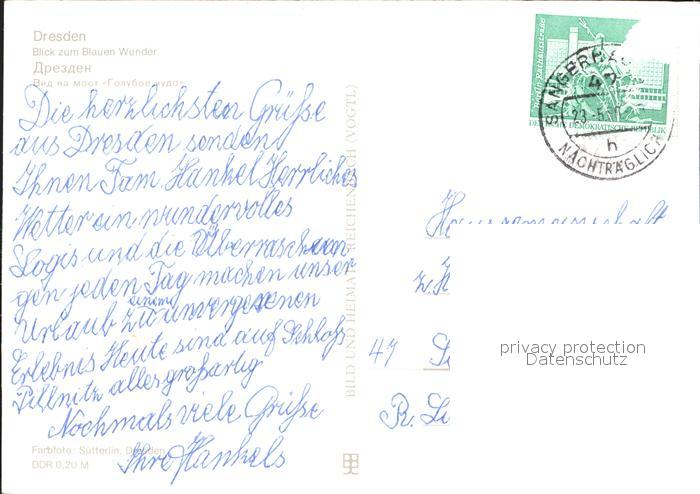 Dresden
Blick zum Blauen Wunder
Дрезден
Вид на мост «Голубое чудо»
Die herzlichsten Grüße
aus Dresden senden
Ihnen Fam. Hankel Herrliches
Wetter ein wundervolles
Logis und die Überraschun
gen jeden Tag machen unser
Urlaub zu einem unvergessenen
Erlebnis Heute sind auf Schloß
Pillnitz alles großartig
Nochmals viele Grüße
Ihre Hankels
Farbfoto: Sütterlin, Dresden
DDR 0,20 M
BILD UND HEIMAT REICHENBACH (VOGTL)
Berlin, Rathausstraße
DEUTSCHE DEMOKRATISCHE REPUBLIK
47
23.-5.
h
NACHTRÄGLICH
Hausgemeinschaft
z.H
47 S
R. Lu
privacy protection
Datenschutz